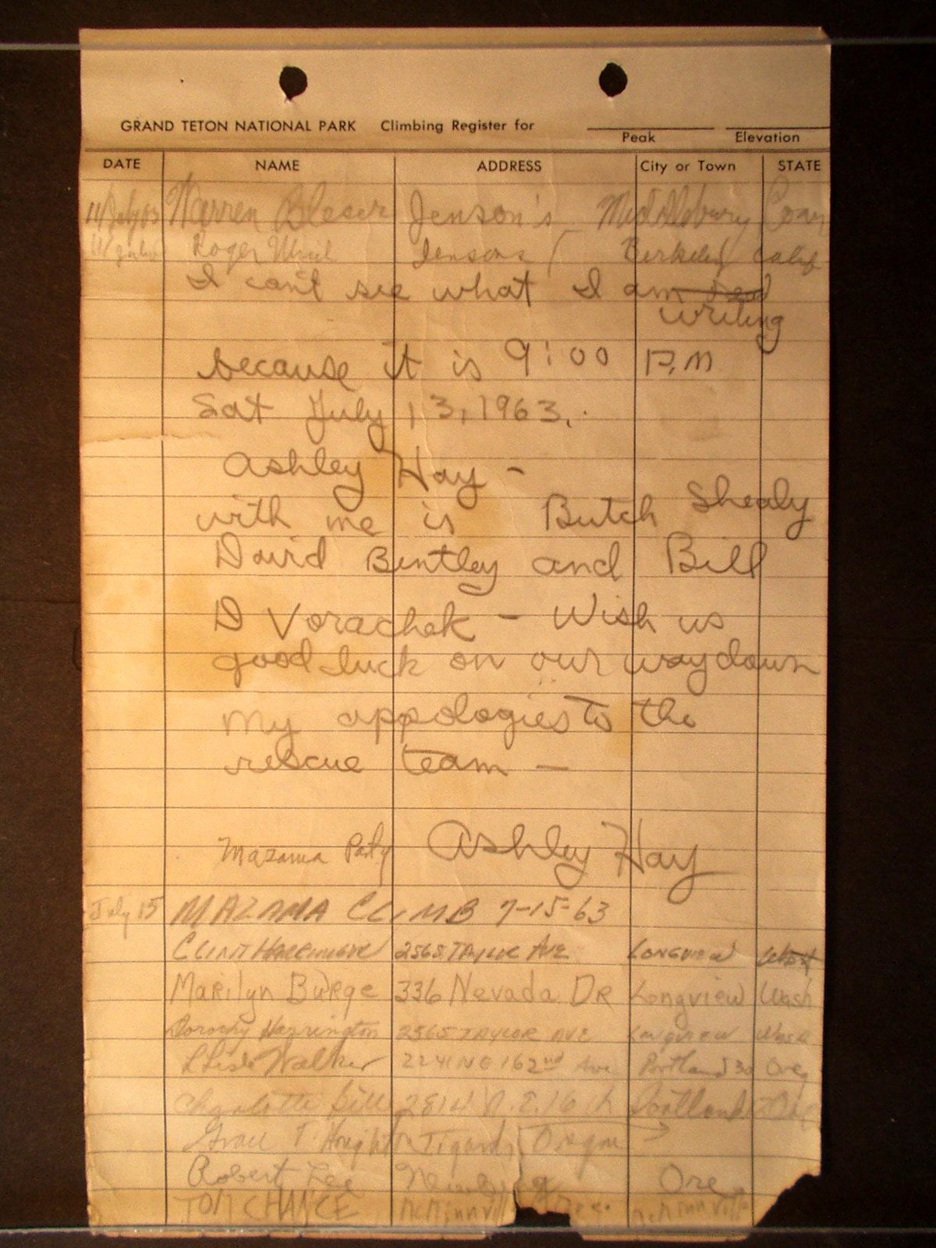 GRAND TETON NATIONAL PARK Climbing Register for
Peak Elevation
DATE NAME ADDRESS City or Town STATE
11 July 63 Warren Bleser Jenson's Middlebury Conn
Roger Jensons Berkeley Calif
I can't see what I am
writing
because it is 9:00 P.M
Sat July 13, 1963.
Ashley Hay -
with me is Butch Shealy
David Bintley and Bill
D Vorachek - Wish us
good luck on our way down
My appologies to the
rescue team -
Mazama Party Ashley Hay
July 15 MAZAMA CLIMB 7-15-63
CLINT 2565 TAYLOR AVE LONGVIEW
Marilyn Burge 336 Nevada DR Longview Wash
Dorothy Harrington 2565 TAYLOR AVE Longview Wash
Walker 2241 NE 162nd Ave Portland 30 Ore
Charlotte 2814 N.E. 16th Portland
T. Tigard, Oregon
Robert Lee Ore
TOM CHANCE McMinnville